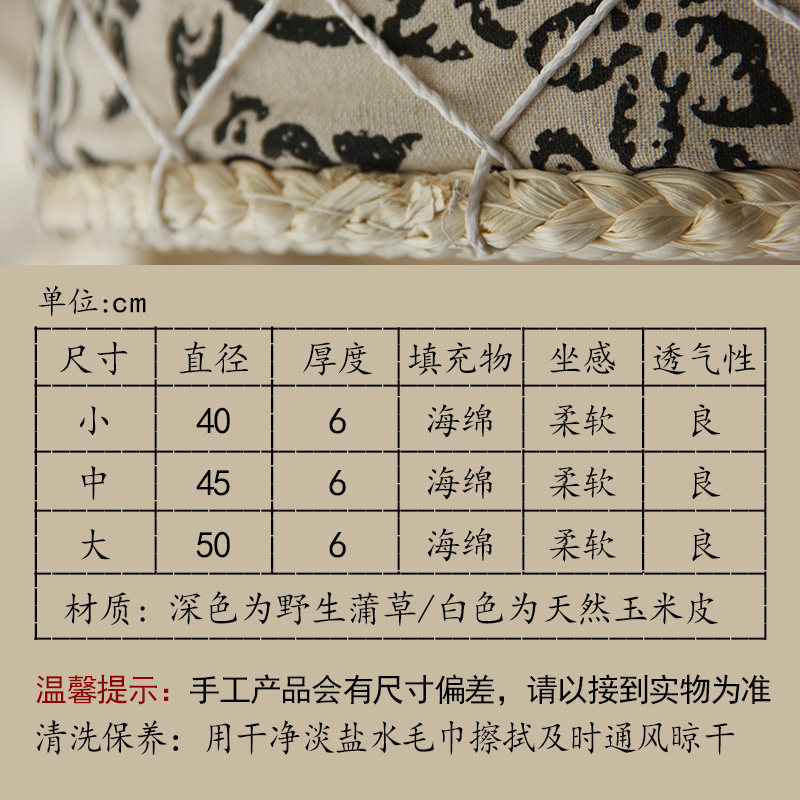 单位:cm
尺寸 直径 厚度 填充物 坐感 透气性
小 40 6 海绵 柔软 良
中 45 6 海绵 柔软 良
大 50 6 海绵 柔软 良
材质：深色为野生蒲草/白色为天然玉米皮
温馨提示：手工产品会有尺寸偏差，请以接到实物为准
清洗保养：用干净淡盐水毛巾擦拭及时通风晾干